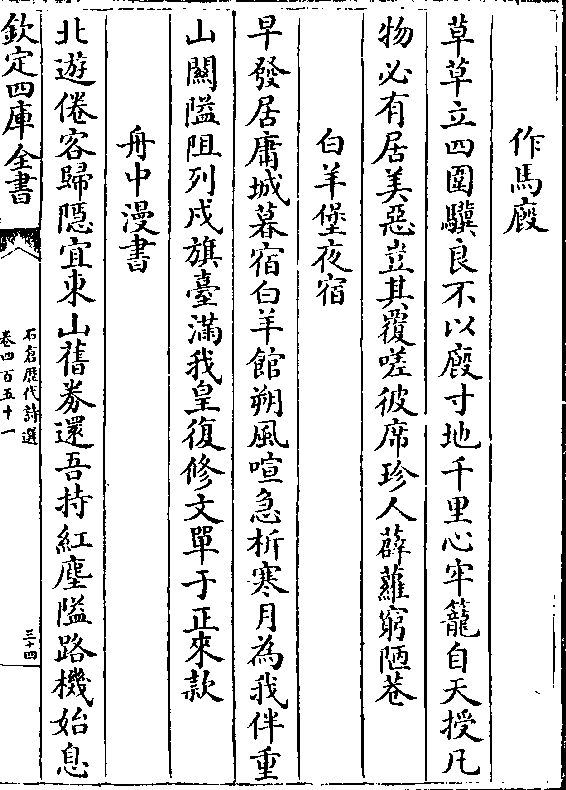 作馬廄
草草立四圍驥良不以廄寸地千里心牢籠自天授凡
物必有居美惡豈其覆嗟彼席珍人薜蘿窮陋巷
白羊堡夜宿
早發居庸城暮宿白羊館朔風喧急柝寒月為我伴重
山關隘阻列戍旗臺滿我皇復修文單于正來款
舟中漫書
北遊倦客歸隱宜東山舊劵還吾持紅塵隘路機始息
欽定四庫全書
石倉歷代詩選
卷四百五十一
三十四